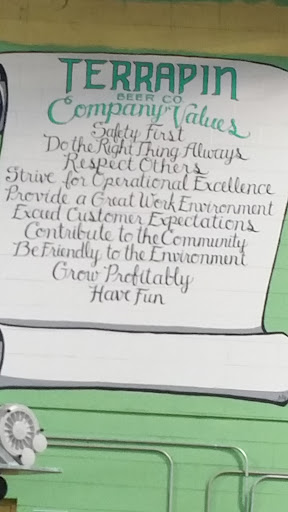 TERRAPIN
BEER CO.
Company Values
Safety First
Do the Right Thing Always
Respect Others
Strive for Operational Excellence
Provide a Great Work Environment
Exceed Customer Expectations
Contribute to the Community
Be Friendly to the Environment
Grow Profitably
Have Fun